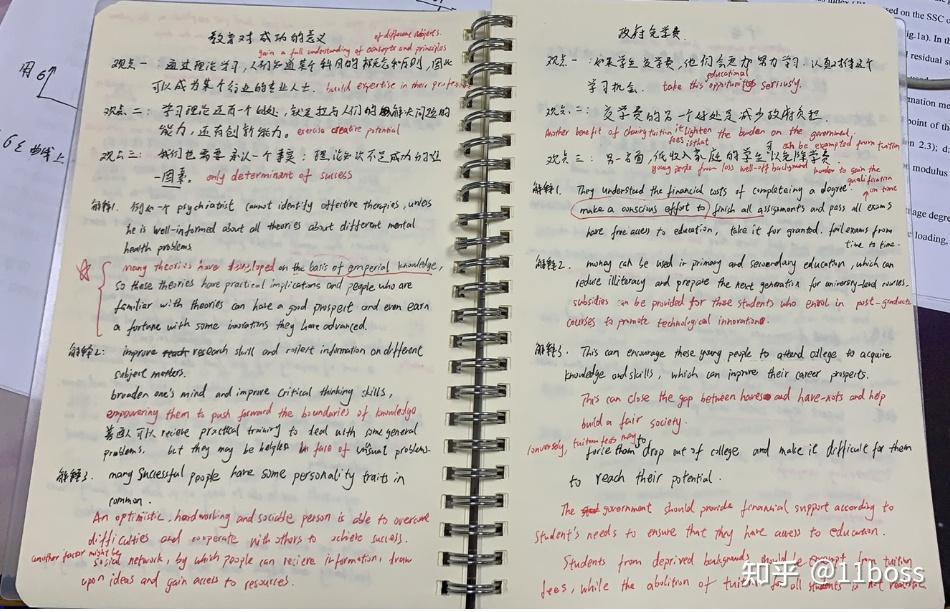 教育对成功的意义
of different subjects.
gain a full understanding of concepts and principles
观点一: 通过理论学习,人们知道某个科目的概念和原则,因此
可以成为某个行业的专业人士. build expertise in their
观点二: 学习理论还有一个好处,就是提高人们的解决问题的
能力,还有创新能力. exercise creative potential
观点三: 我们也需要承认一个事实: 理论知识不是成功的唯
一因素. only determinant of success
解释1. 例如 a psychiatrist cannot identify effective therapies, unless
he is well-informed about all theories about different mental
health problems.
many theories have developed on the basis of emperial knowledge,
so these theories have practical implications and people who are
familiar with theories can have a good prospect and even earn
a fortune with some they have advanced.
解释2: improve research skill and collect information on different
subject matters.
broaden one's mind and improve critical thinking skills,
empowering them to push forward the boundaries of knowledge
普通人可以 recieve practical training to deal with some general
problems, but they may be helpless in face of unusual problems.
解释3. many successful people have some personality traits in
common.
An optimistic, hardworking and sociable person is able to overcome
difficulties and cooperate with others to achieve success.
another factor might be
social network, by which people can recieve information, draw
upon ideas and gain access to resources.
用σ
σε 曲线上
政府免学费.
观点一: 如果学生交学费,他们会更加努力学习,认真对待这个
educational
学习机会. take this opportunity seriously.
观点二: 交学费的另一个好处是减少政府负担.
Another benefit of charging tuition fees is that it lighten the burden on the government,
can be exempted from tuition
观点三: 另一方面,低收入家庭的学生可以免除学费
young people from less well-off background
harder to gain the
qualification
on time
解释1. They understand the financial costs of completeing a degree.
make a conscious effort to finish all assignments and pass all exams
have free access to education, take it for granted. fail exams from
time to time.
解释2. money can be used in primary and secondary education, which can
reduce illiteracy and prepare the next generation for university-level courses.
subsidies can be provided for those students who enroll in post-graduate
courses to promote technological innovations.
解释3. This can encourage these young people to attend college to acquire
knowledge and skills, which can improve their career prospects.
This can close the gap between haves and have-nots and help
build a fair society.
Conversely, tuition fees may
force them to drop out of college and make it difficult for them
to reach their potential.
The government should provide financial support according to
student's needs to ensure that they have access to education.
Students from deprived backgrounds should be exempt from tuition
fees, while the abolition of tuition for all students is not
知乎 @11boss
sed on the SSC o
ig.1a). In th
residual s
mation me
point of the
n 2.3); d
modulus
age degre
c loading,